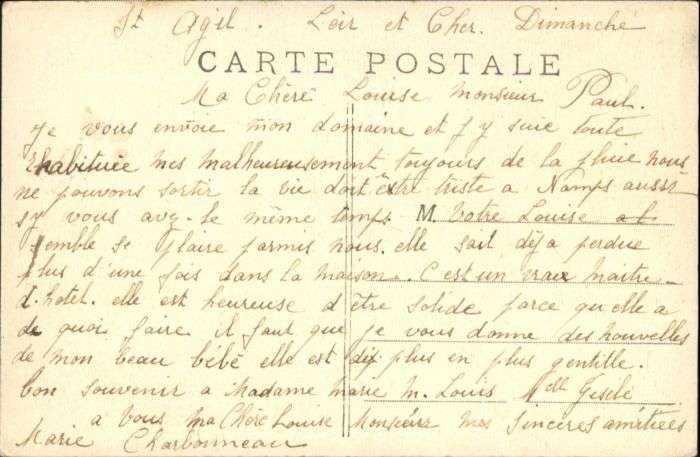 St Agil. Loir et Cher. Dimanche
CARTE POSTALE
Ma Chère Louise monsieur Paul.
Je vous envoie mon domaine et j y suie toute
rhabituée mes malheureusement toujours de la pluie nous
ne pouvons sortir la vie doit être triste a Namps aussi
sy vous avy. le même temps M. Votre Louise
semble se plaire parmis nous. elle sait déja perdue
plus d'une fois dans la maison. C est un vraie maitre
d. hotel. elle est heureuse d être solide parce qu elle a
de quoi faire il faut que je vous donne des nouvelles
de mon beau bébé elle est plus en plus gentille.
bon souvenir a Madame marie m. Louis Melle Gisèle
a Vous ma Chère Louise Monsieur mes sincères amitiées
Marie Charbonneau